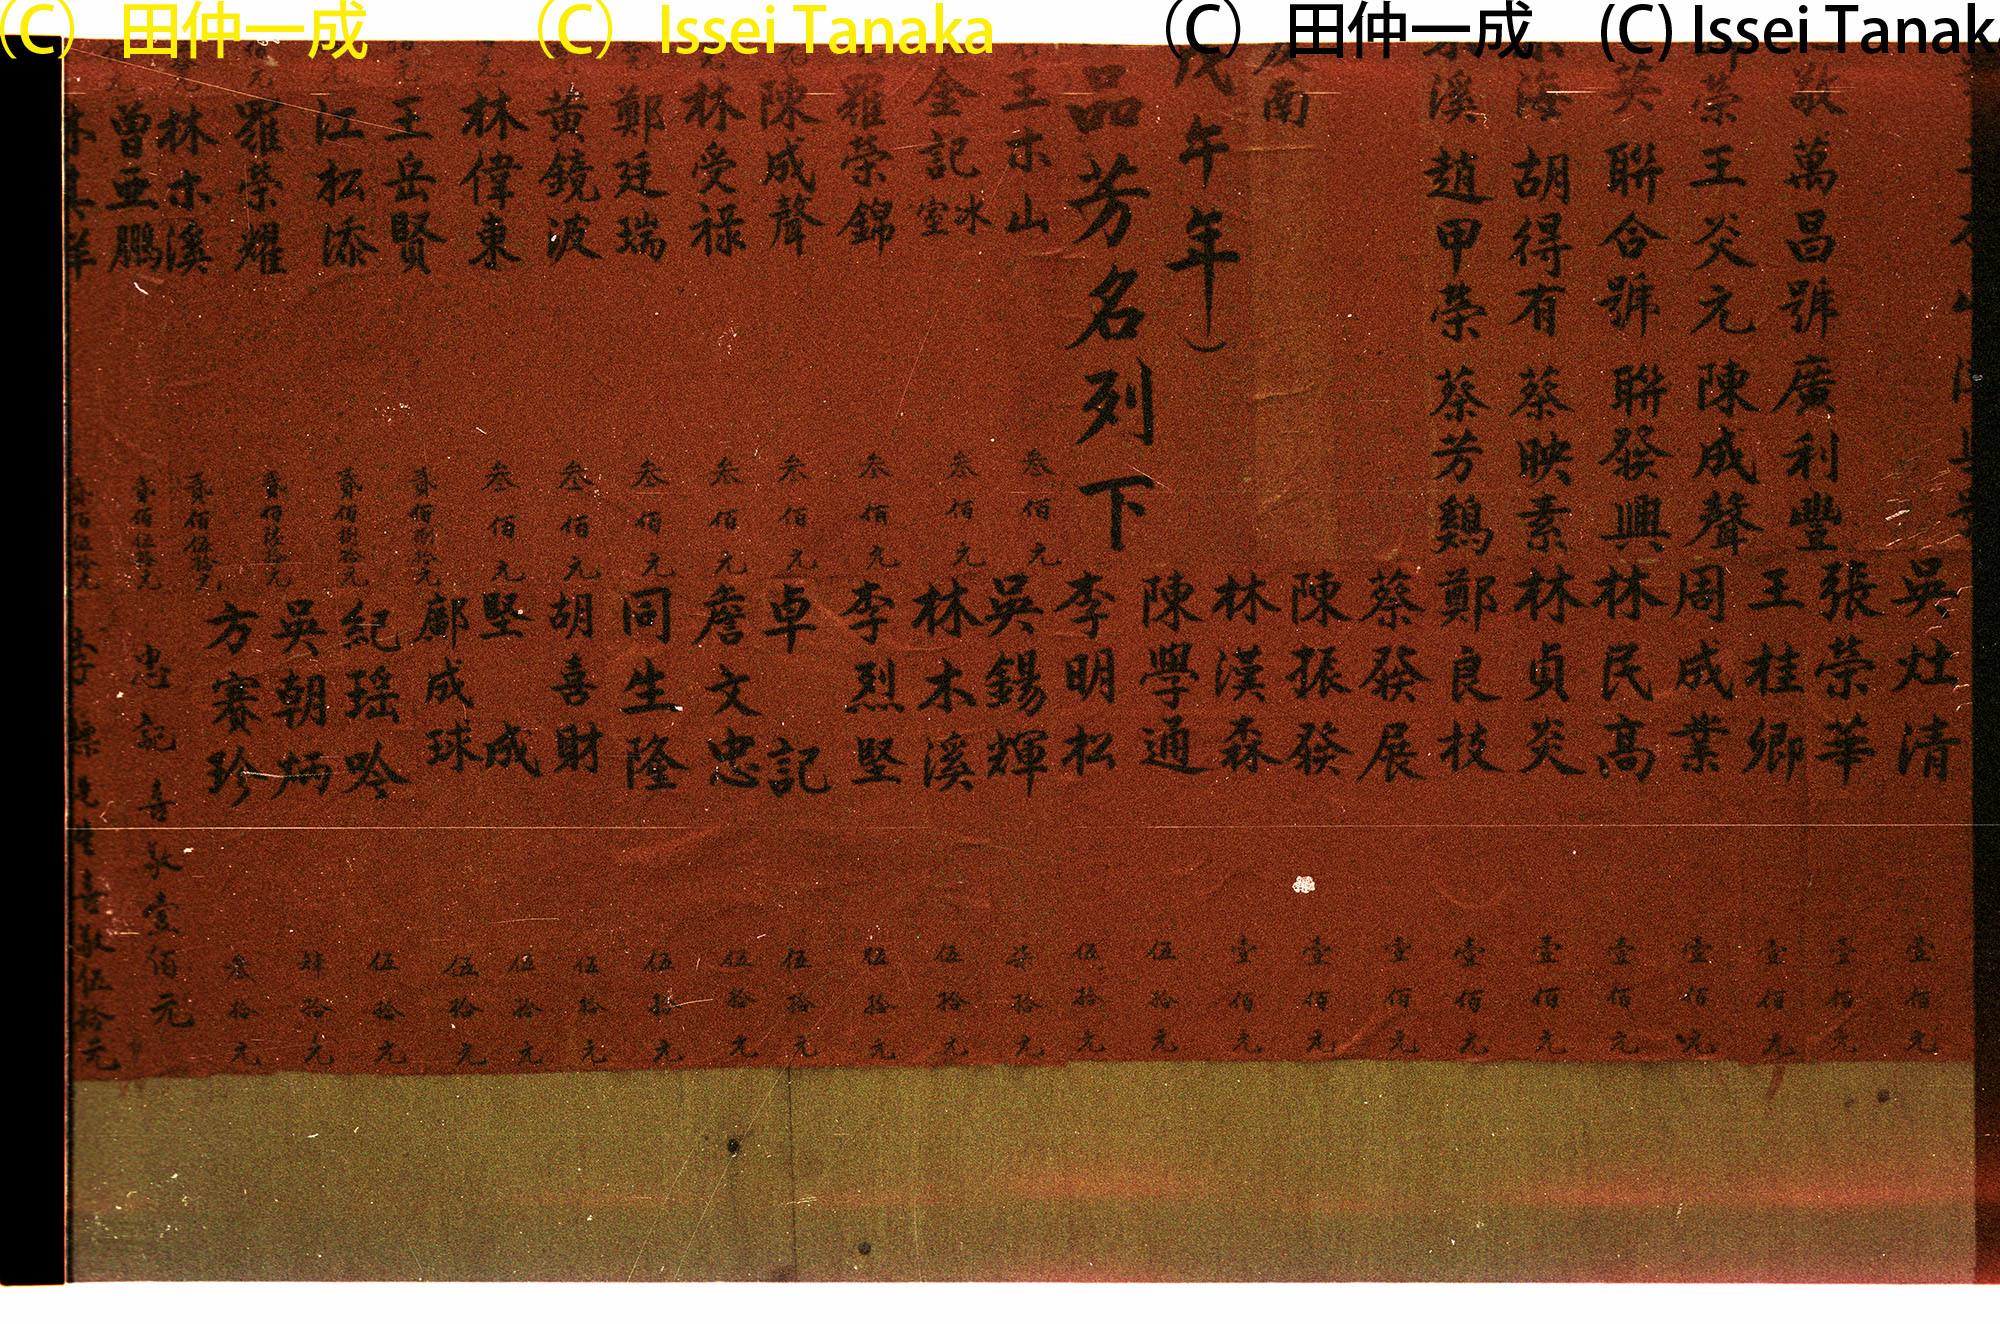 (C) 田仲一成 (C) Issei Tanaka (C) 田仲一成 (C) Issei Tanaka
敬萬昌號廣利豐
榮王炎元陳成聲
英聯合號聯發興
海胡得有蔡映素
溪趙甲榮蔡芳鷄
南
戊午年)
品芳名列下
王木山
金記冰室
羅榮錦
陳成聲
林受祿
鄭廷瑞
黃鏡波
林偉東
王岳賢
江松添
羅榮耀
林木溪
曾亞鵬
叁佰元
叁佰元
叁佰元
叁佰元
叁佰元
叁佰元
叁佰元
叁佰元
貳佰捌拾元
貳佰捌拾元
貳佰陸拾元
貳佰伍拾元
貳佰伍拾元
貳佰伍拾元
吳灶清 壹佰元
張榮華 壹佰元
王桂卿 壹佰元
周成業 壹佰元
林民高 壹佰元
林貞炎 壹佰元
鄭良技 壹佰元
蔡發展 壹佰元
陳振發 壹佰元
林漢森 壹佰元
陳學通 伍拾元
李明松 伍拾元
吳錫輝 柒拾元
林木溪 伍拾元
李烈堅 伍拾元
卓記 伍拾元
詹文忠 伍拾元
同生隆 伍拾元
胡喜財 伍拾元
堅成 伍拾元
鄺成球 伍拾元
紀瑶吟 伍拾元
吳朝炳 肆拾元
方賽珍 叁拾元
忠記喜敬壹佰元
喜敬伍拾元